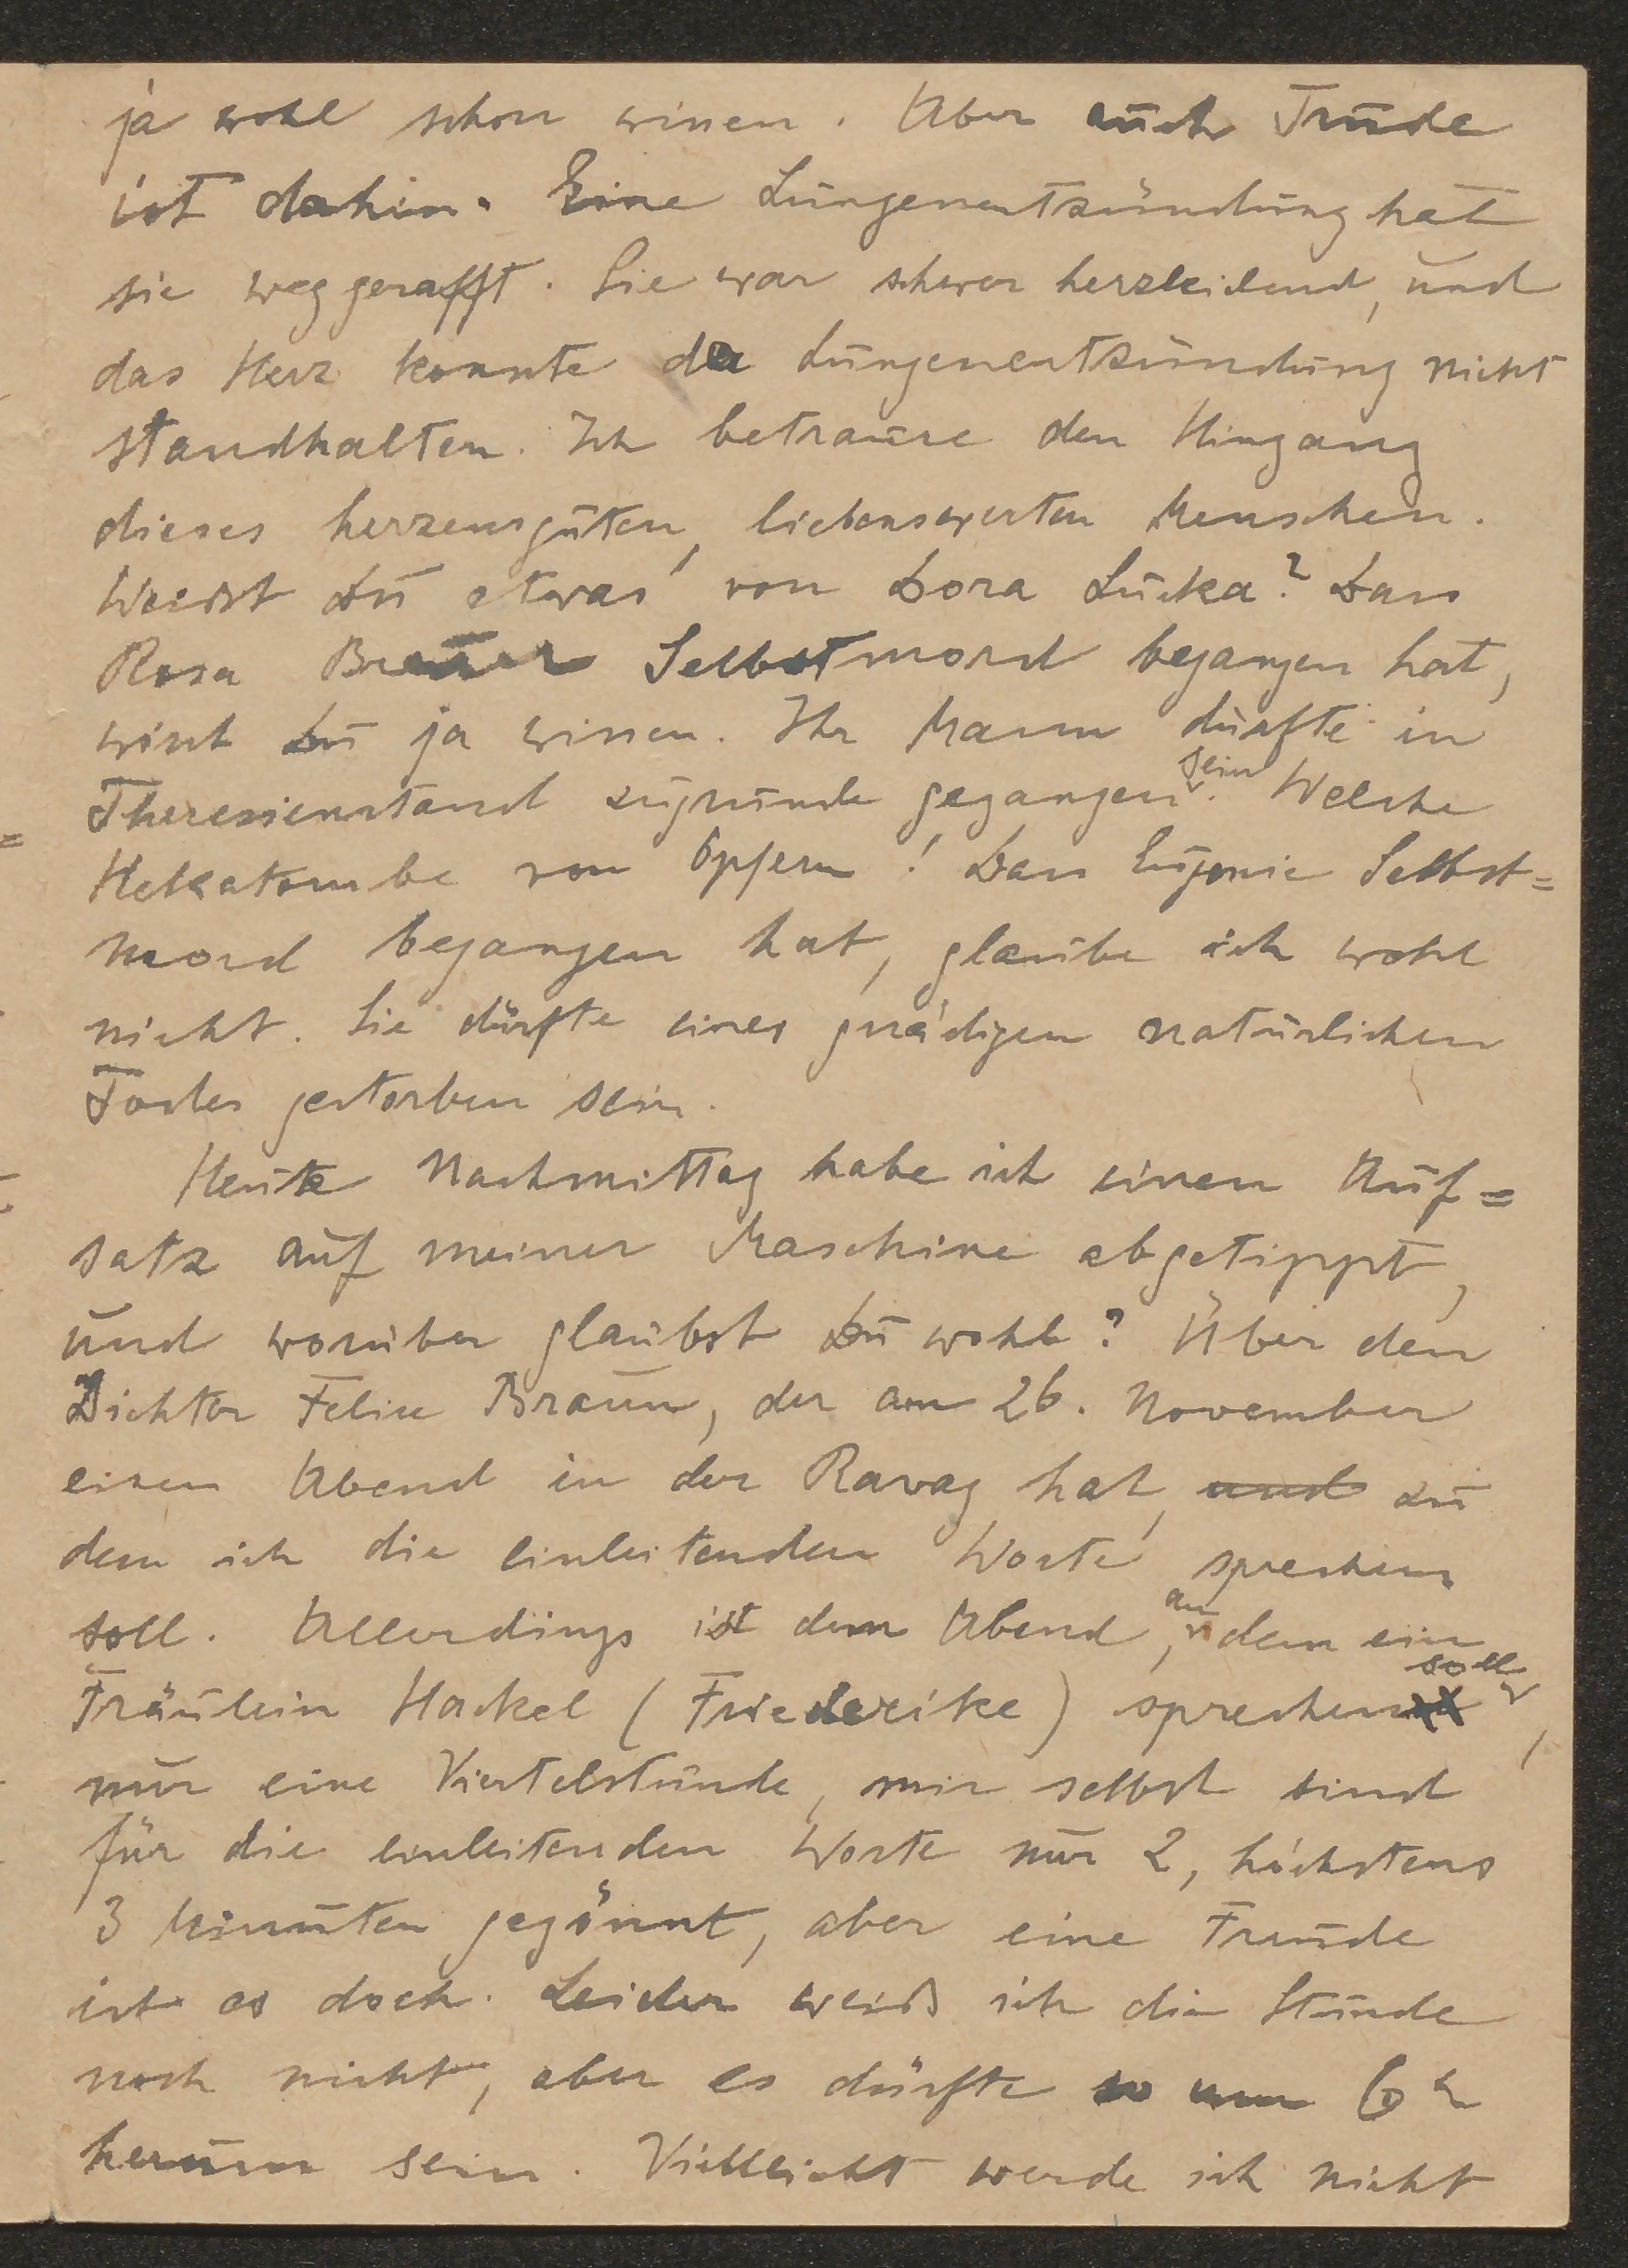 ja wohl schon wissen. Aber auch Trude
ist dahin. Eine Lungenentzündung hat
sie weggerafft. Sie war schwer herzleidend, und
das Herz konnte der Lungenentzündung nicht
standhalten. Ich betraure den Hingang
dieses herzensguten, liebenswerten Menschen.
Weißt Du etwas von Dora Lucka? Dass
Rosa Breuer Selbstmord begangen hat,
wirst Du ja wissen. Ihr Mann dürfte in
Theresienstand zugrunde gegangen sein. Welche
Hekatombe von Opfern! Dass Eugenie Selbst=
mord begangen hat, glaube ich wohl
nicht. Sie dürfte eines gnädigen natürlichen
Todes gestorben sein.
Heute Nachmittag habe ich einen Auf=
satz auf meiner Maschine abgetippt,
und worüber glaubst Du wohl? Über den
Dichter Felix Braun, der am 26. November
einen Abend in der Ravag hat, und zu
dem ich die einleitenden Worte sprechen
soll. Allerdings ist dem Abend, an dem ein
Fräulein Hackel (Friederike) sprechen soll,
nur eine Viertelstunde, mir selbst sind
für die einleitenden Worte nur 2, höchstens
3 Minuten gegönnt, aber eine Freude
ist es doch. Leider weiß ich die Stunde
noch nicht, aber es dürfte so um 6 h
herum sein. Vielleicht werde ich nicht